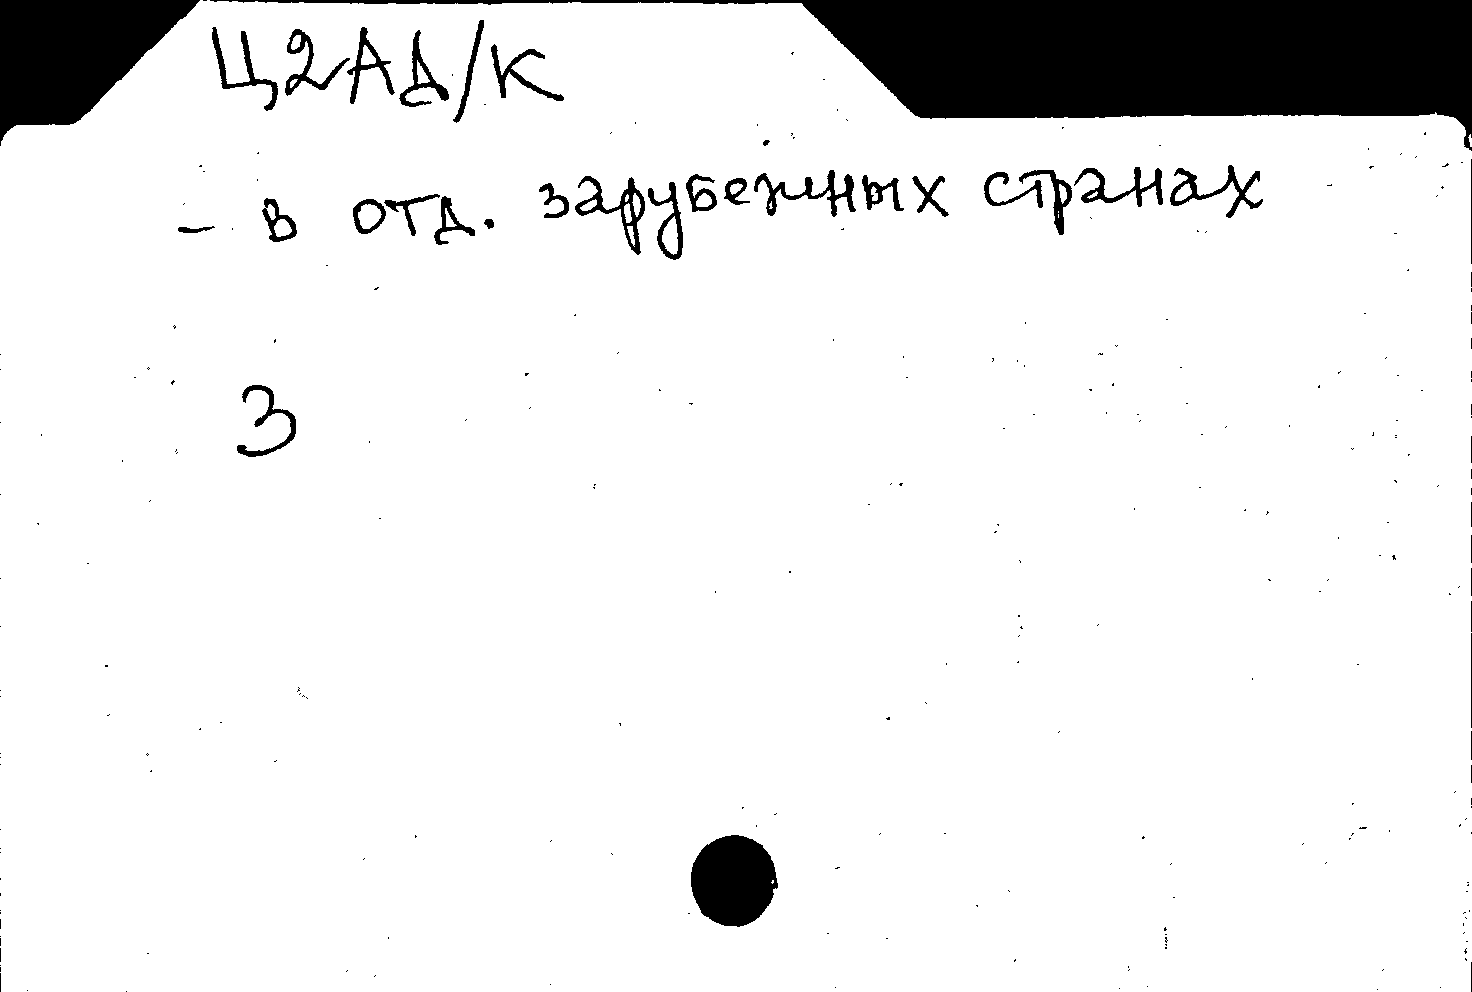 Ц2АД/К
- в отд. зарубежных странах
З